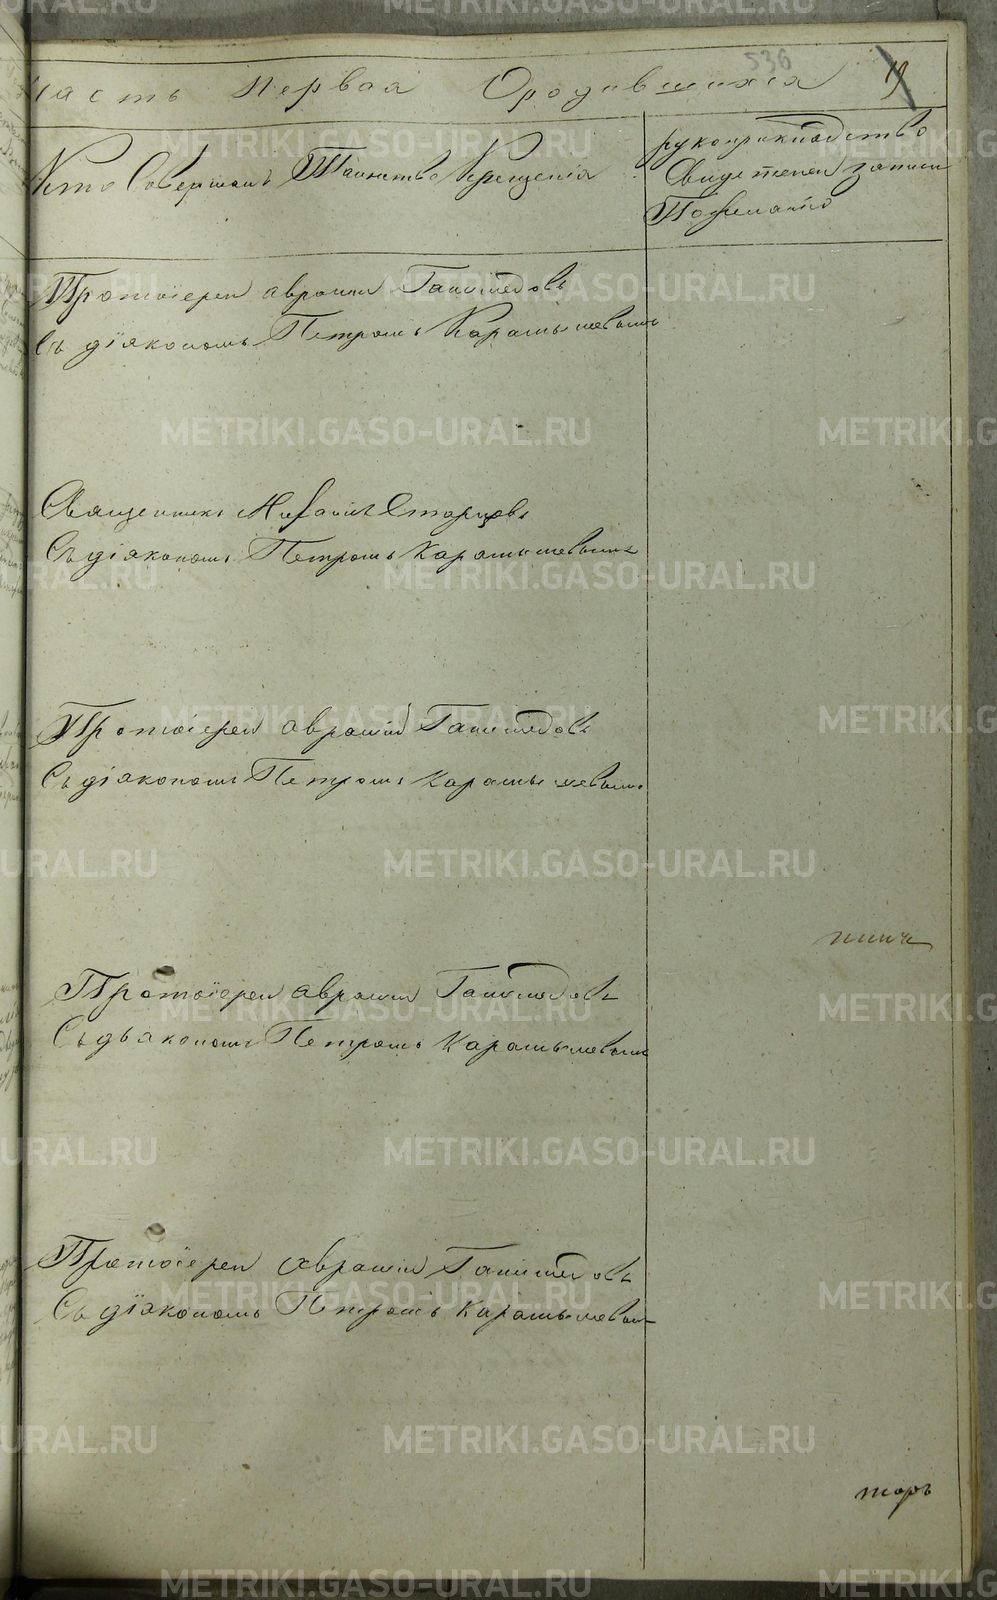 536
19
Часть Первая О родившихся
Кто Совершалъ Таинство Крещенія
рукоприкладство
Свидетелей записи
По желанію
Протоіерей авраамій
Съ діакономъ Петромъ Карамышевымъ
Священникъ Михаилъ Старцовъ
Съ діакономъ Петромъ Карамышевымъ
Протоіерей аврамій
Съ діакономъ Петромъ Карамышевымъ
Протоіерей аврамій
Съ дьякономъ Петромъ Карамышевымъ
Протоіерей аврамій
Съ діакономъ Петромъ Карамышевымъ
торъ
METRIKI.GASO-URAL.RU